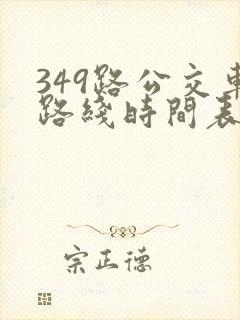 349路公交車
路綫時間表
宗正德